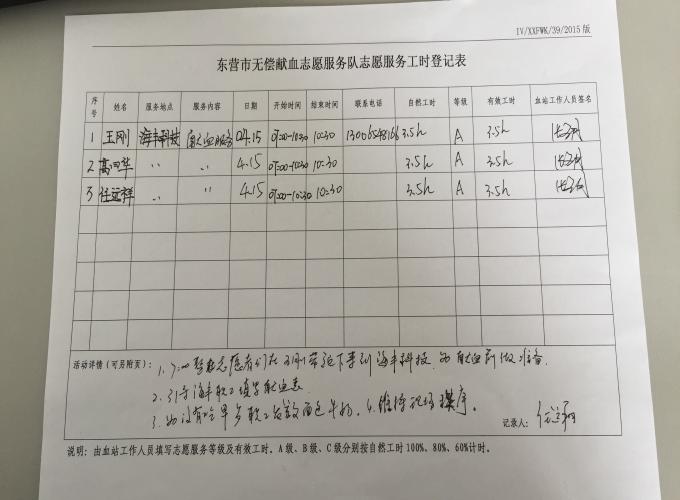 IV/XXFWK/39/2015 版
东营市无偿献血志愿服务队志愿服务工时登记表
序号 姓名 服务地点 服务内容 日期 开始时间 结束时间 联系电话 自然工时 等级 有效工时 血站工作人员签名
1 王刚 海丰科技 献血服务 4.15 07:00-10:30 10:30 3.5h A 3.5h
2 高四华 〃 〃 4.15 07:00-10:30 10:30 3.5h A 3.5h
3 任远祥 〃 〃 4.15 07:00-10:30 10:30 3.5h A 3.5h
活动详情（可另附页）： 1、7:00 志愿者们在王刚带领下来到海丰科技，为献血前做准备
2、引导海丰职工填写献血表
3、为没有吃早 职工 面包牛奶。4、维持现场秩序。
记录人：
说明：由血站工作人员填写志愿服务等级及有效工时。A 级、B 级、C 级分别按自然工时 100%、80%、60%计时。